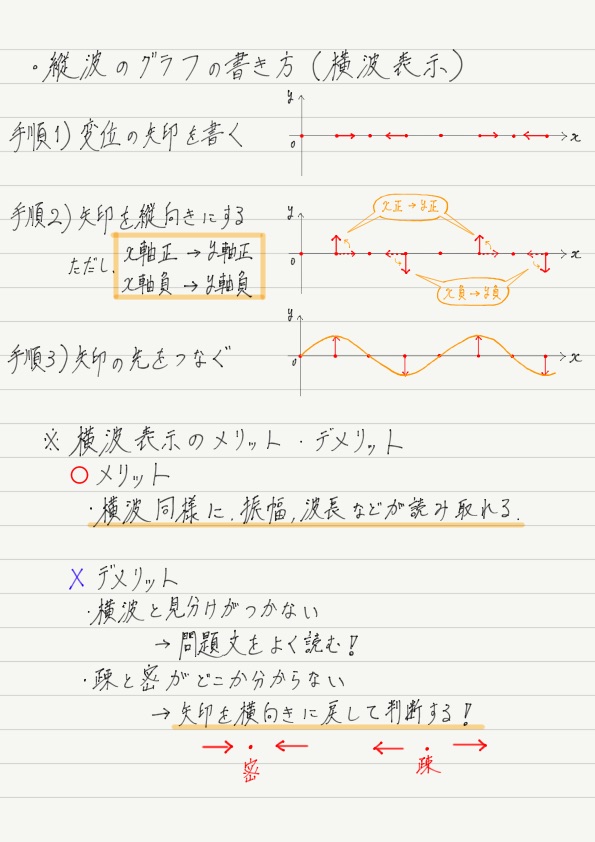 ・縦波のグラフの書き方（横波表示）
手順1）変位の矢印を書く
y
0
x
手順2）矢印を縦向きにする
ただし、
x軸正 → y軸正
x軸負 → y軸負
y
0
x
x正→y正
x負→y負
手順3）矢印の先をつなぐ
y
0
x
※ 横波表示のメリット・デメリット
○ メリット
・横波同様に、振幅，波長などが読み取れる．
X デメリット
・横波と見分けがつかない
→ 問題文をよく読む！
・疎と密がどこか分からない
→ 矢印を横向きに戻して判断する！
→ ・ ←
← ・ →
密
疎